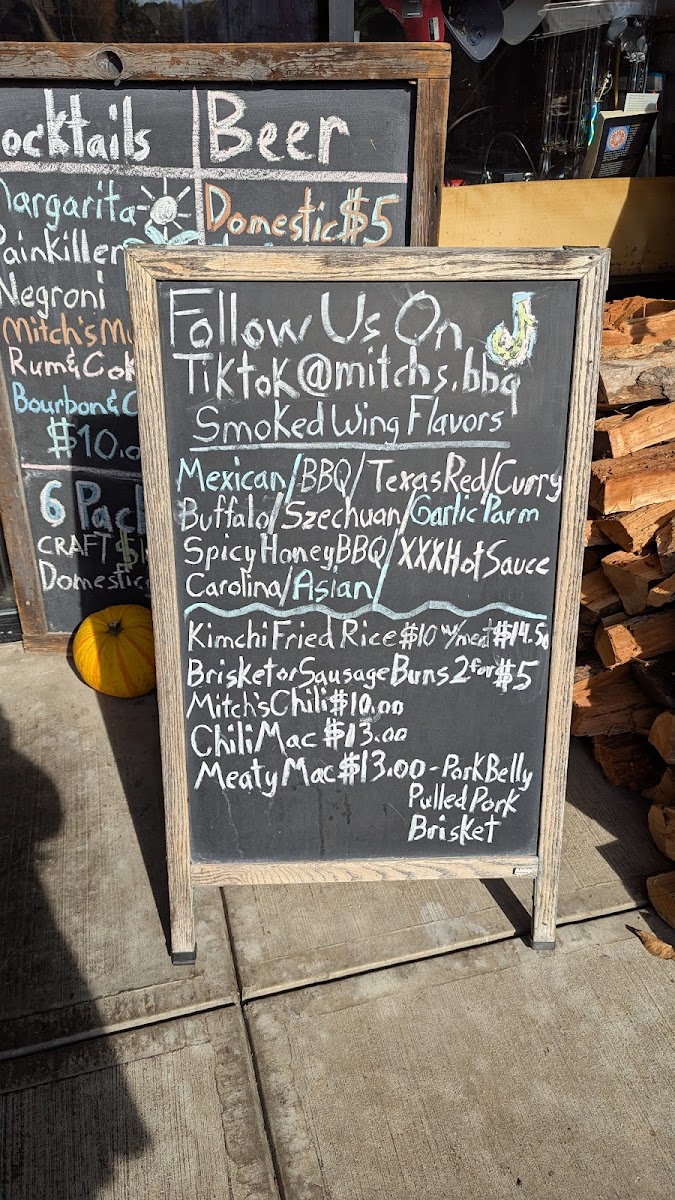 Cocktails
Beer
Margarita
Domestic $5
Painkiller
Negroni
Mitch's
Rum & Cok
Bourbon & C
$10.0
6 Pac
CRAFT $1
Domestic
Follow Us On
Tiktok@mitchs.bbq
Smoked Wing Flavors
Mexican/BBQ/Texas Red/Curry
Buffalo/Szechuan/Garlic Parm
Spicy Honey BBQ/XXX Hot Sauce
Carolina/Asian/
Kimchi Fried Rice $10 w/meat $14.50
Brisket or Sausage Buns 2 for $5
Mitch's Chili $10.00
Chili Mac $13.00
Meaty Mac $13.00 - Pork Belly
Pulled Pork
Brisket